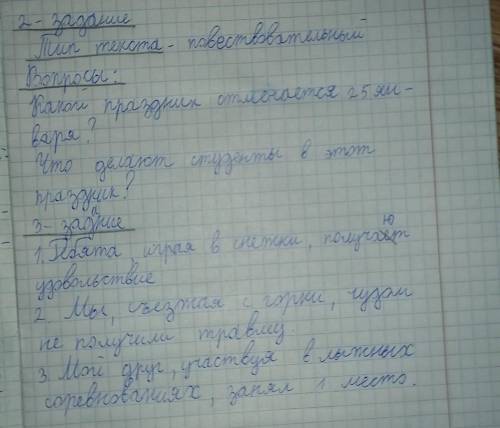 2 - задание
Тип текста - повествовательный
Вопросы:
Какой праздник отмечается 25 ян-
варя?
Что делают студенты в этот
праздник?
3 - задние
1. Ребята, играя в снежки, получают
удовольствие
2. Мы, съезжая с горки, чудом
не получили травму.
3. Мой друг, участвуя в лыжных
соревнованиях, занял 1 место.